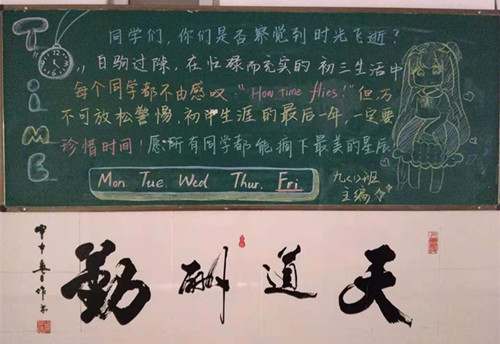 TiME
同学们,你们是否察觉到时光飞逝?
白驹过隙,在忙碌而充实的初三生活中
每个同学都不由感叹"How time flies!"但万
不可放松警惕,初中生涯的最后一年,一定要
珍惜时间!愿所有同学都能摘下最美的星辰
Mon Tue. Wed Thur. Fri
班
主编
天道酬勤